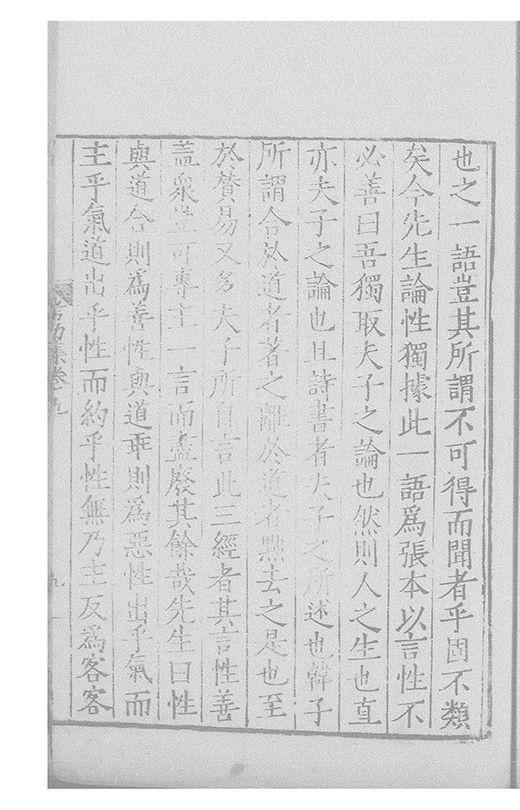 也之一語豈其所謂不可得而聞者乎固不類
矣今先生論性獨據此一語爲張本以言性不
必善曰吾獨取夫子之論也然則人之生也直
亦夫子之論也且詩書者夫子之所述也韓子
所謂合於道者著之離於道者黜去之是也至
於贊易又多夫子所自言此三經者其言性善
蓋衆豈可專主一言而盡廢其餘哉先生曰性
與道合則爲善性與道乖則爲惡性出乎氣而
主乎氣道出乎性而約乎性無乃主反爲客客
集卷九
九